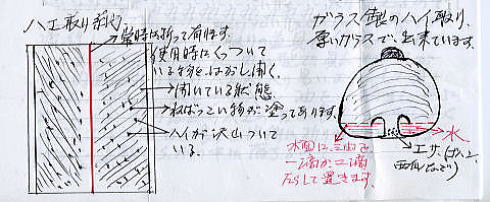 ハエ取り紙
常時は折って有ります。
使用時にくっついて
いる物をはがし開く。
開いている状態
ねばっこい物が塗ってあります。
ハイが沢山ついて
いる。
ガラス製のハイ取り、
厚いガラスで、出来ています。
水
水面に、油を
一滴か二滴
たらして置きます。
エサ、(ゴハン、
西瓜など)